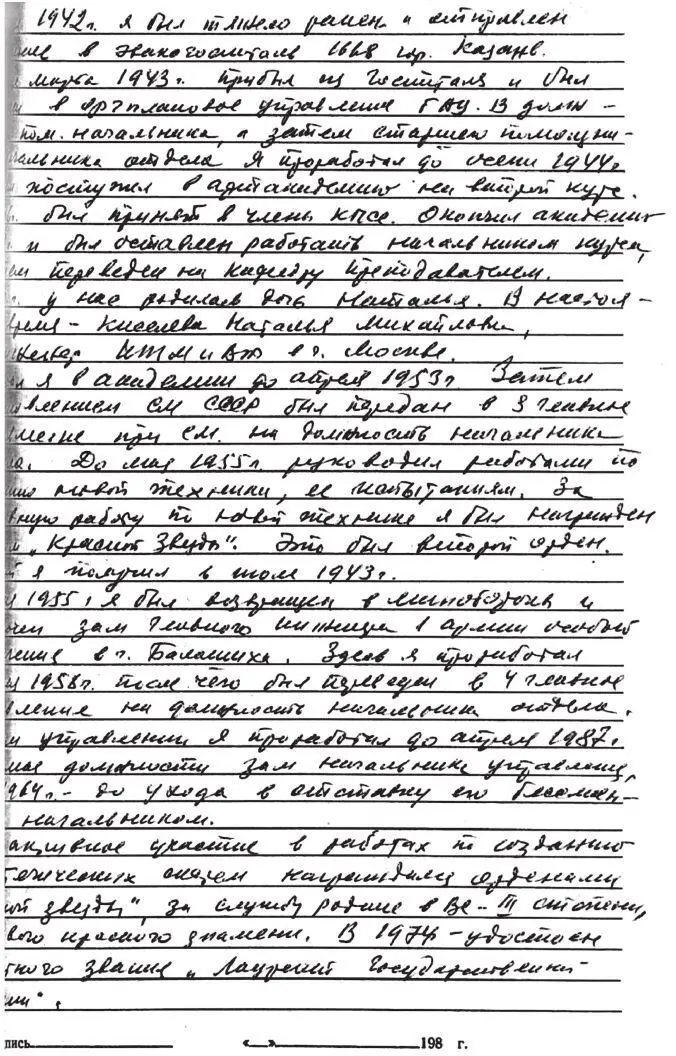 1942 г. я был тяжело ранен и отправлен
в эвакогоспиталь 1668 гор. Казань.
марта 1943 г. прибыл из госпиталя и был
в оргплановое управление ГАУ. В долж-
пом. начальника, а затем старшего помощни-
чальника отдела я проработал до осени 1944 г
поступил в артакадемию на второй курс.
был принят в члены КПСС. Окончил академию
и был оставлен работать начальником курса,
ем переведен на кафедру преподавателем.
у нас родилась дочь Наталья. В настоя-
время - Киселева Наталья Михайловна,
ИТМ и ВТ в г. Москве.
я в академии до апреля 1953 г Затем
овлением СМ СССР был передан в 3 главное
при СМ. на должность начальника
ла. До мая 1955 г. руководил работами по
нию новой техники, ее испытаниям. За
вную работу по новой технике я был награжден
м „Красной Звезды". Это был второй орден.
й я получил в 1943 г.
1955 г я был возвращен в минобороны и
чен зам главного инженера 1 армии особого
чения в г. Балашиха. Здесь я проработал
1958 г. после чего был переведен в 4 главное
вление на должность начальника отдела.
м управлении я проработал до апреля 1987 г
должности зам начальника управления,
964 г. - до ухода в отставку его бессмен-
начальником.
активное участие в работах по созданию
гических систем награждался орденами
ой звезды", за службу родине в ВС - III степени,
вого красного знамени. В 1974 - удостоен
тного звания „Лауреат Государственной
ии".
пись «__» 198 г.